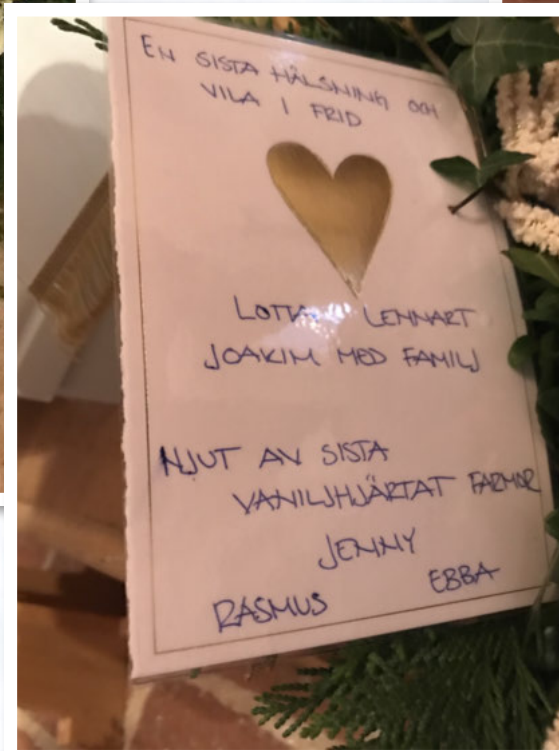 EN SISTA HÄLSNING OCH
VILA I FRID
LOTTA LENNART
JOAKIM MED FAMILJ
NJUT AV SISTA
VANILJHJÄRTAT FARMOR
JENNY
EBBA
RASMUS